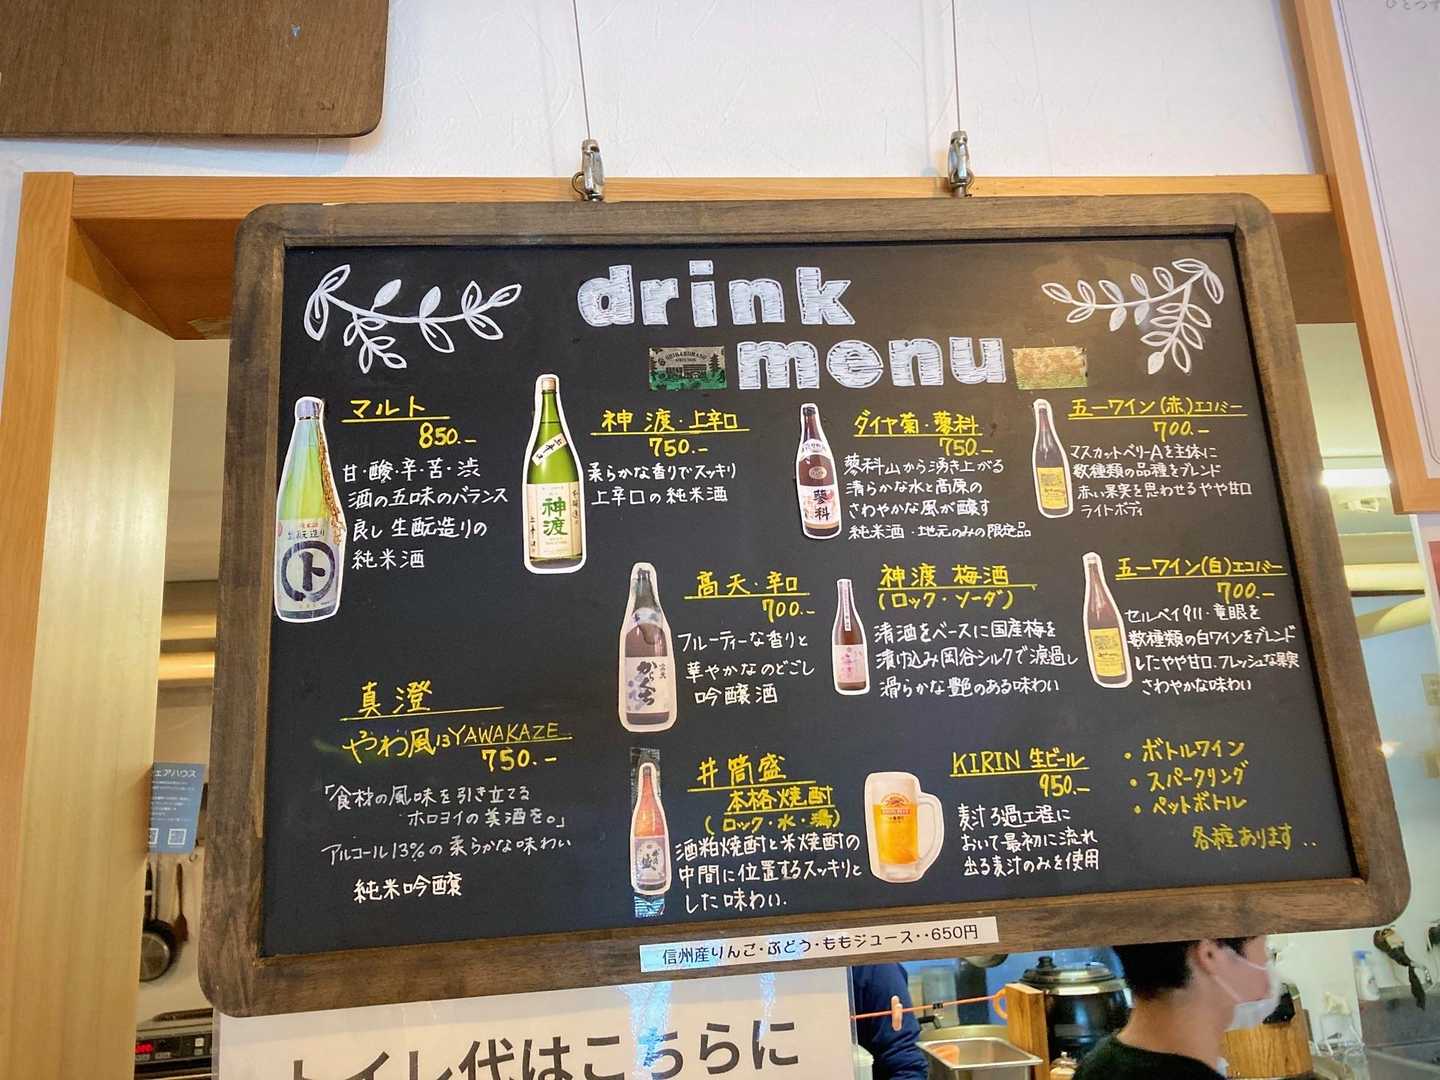 drink
menu
マルト
850.-
甘・酸・辛・苦・渋
酒の五味のバランス
良し 生酛造りの
純米酒
神渡・上辛口
750.-
柔らかな香りでスッキリ
上辛口の純米酒
ダイヤ菊・蓼科
750.-
蓼科山から湧き上がる
清らかな水と高原の
さわやかな風が醸す
純米酒・地元のみの限定品
五一ワイン(赤)エコバー
700.-
マスカットベリーAを主体に
数種類の品種をブレンド
赤い果実を思わせるやや甘口
ライトボディ
高天・辛口
700.-
フルーティーな香りと
華やかなのどごし
吟醸酒
神渡 梅酒
(ロック・ソーダ)
清酒をベースに国産梅を
漬け込み岡谷シルクで濾過し
滑らかな艶のある味わい
五一ワイン(白)エコバー
700.-
セルベイ911・竜眼を
数種類の白ワインをブレンド
したやや甘口.フレッシュな果実
さわやかな味わい
真澄
やわ風13YAWAKAZE
750.-
「食材の風味を引き立てる
ホロヨイの美酒を。」
アルコール13%の柔らかな味わい
純米吟醸
井筒盛
本格焼酎
(ロック・水・湯)
酒粕焼酎と米焼酎の
中間に位置するスッキリと
した味わい.
KIRIN 生ビール
950.-
麦汁ろ過工程に
おいて最初に流れ
出る麦汁のみを使用
・ボトルワイン
・スパークリング
・ペットボトル
各種あります..
生酛造り
ト
神渡
蓼科
からくち
信州産りんご・ぶどう・ももジュース・・650円
トイレ代はこちらに
ェアハウス